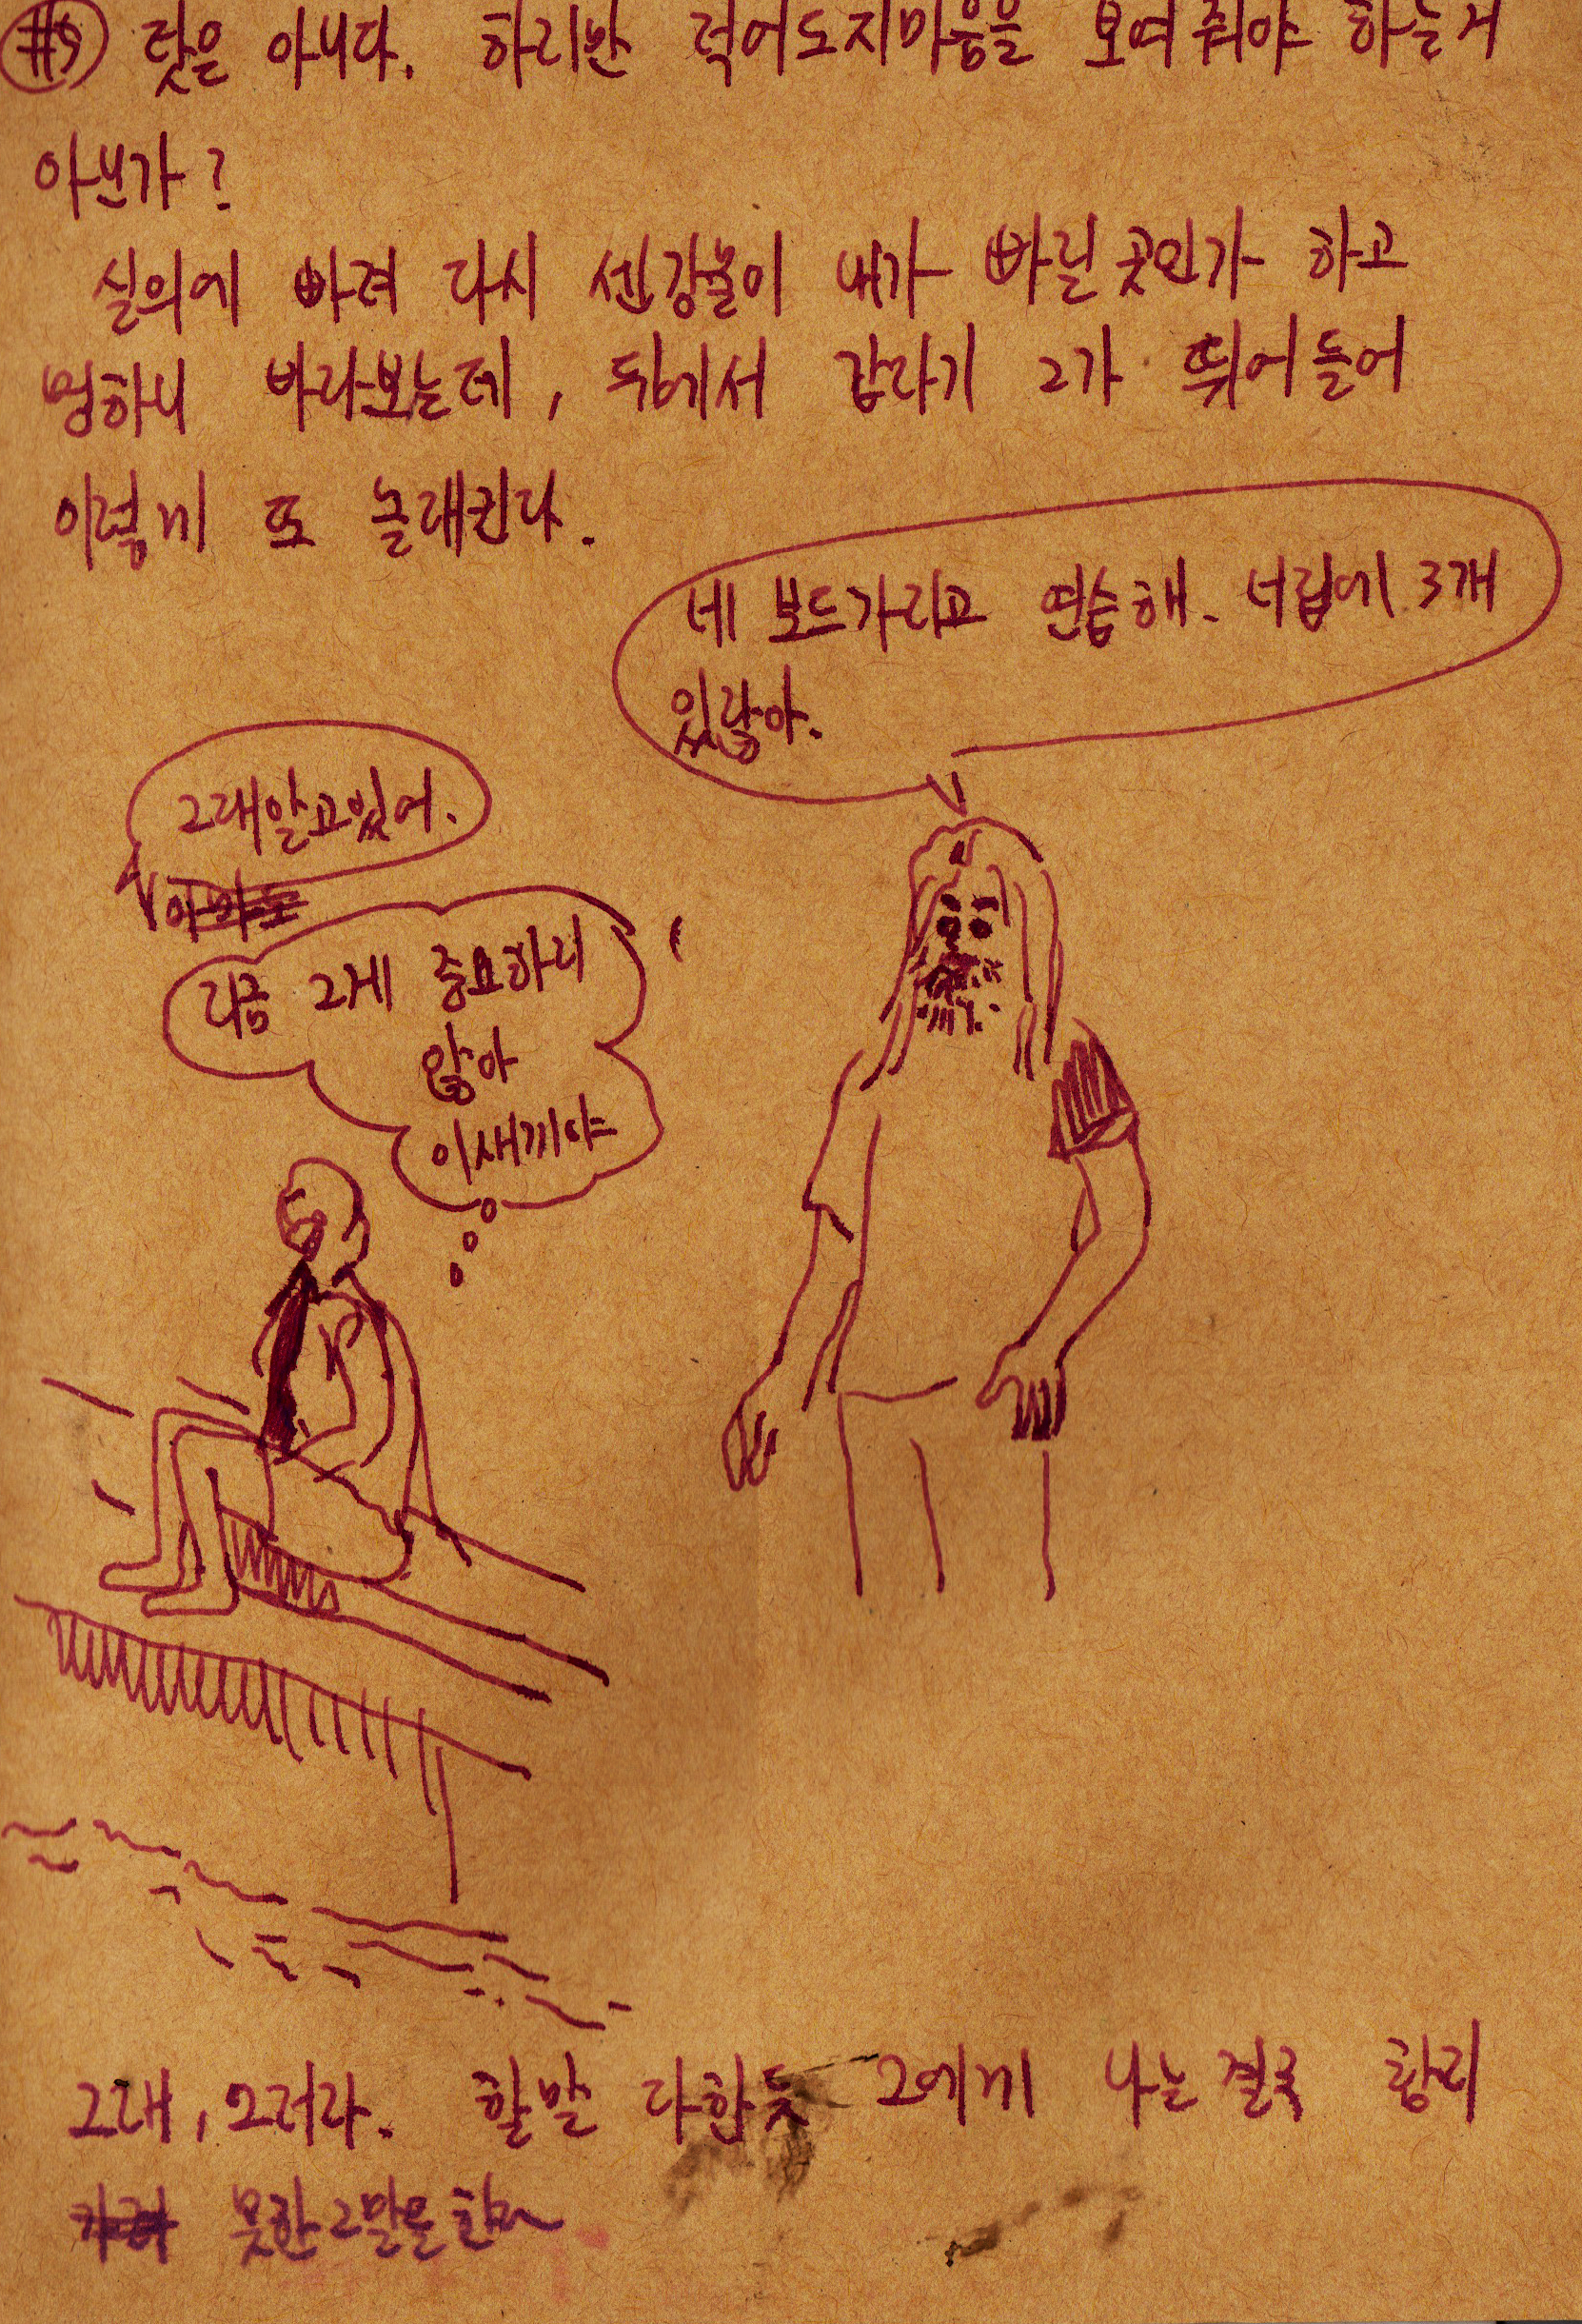 #5 탓은 아니다. 하지만 적어도지마음을 보여줘야 하는거
아닌가?
실의에 빠져 다시 센강물이 내가 빠질곳인가 하고
멍하니 바라보는데, 뒤에서 갑자기 그가 뛰어들어
이렇게 또 놀래킨다.
네 보드가지고 연습해. 너집에 3개
있잖아.
그래알고있어.
지금 그게 중요하지
않아
이새끼야
그래, 그러라. 할말 다한듯 그에게 나는 결국
못한그말을한다